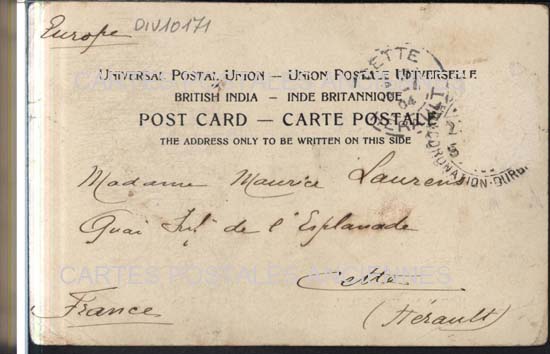 Europe
DIV10171
UNIVERSAL POSTAL UNION — UNION POSTALE UNIVERSELLE
BRITISH INDIA — INDE BRITANNIQUE
POST CARD — CARTE POSTALE
THE ADDRESS ONLY TO BE WRITTEN ON THIS SIDE
CETTE
04
HERAULT
CORONATION-DURB
Madame Maurice Laurens
Quai de l'Esplanade
CARTES POSTALES ANCIENNES
Cette
France
(Hérault)